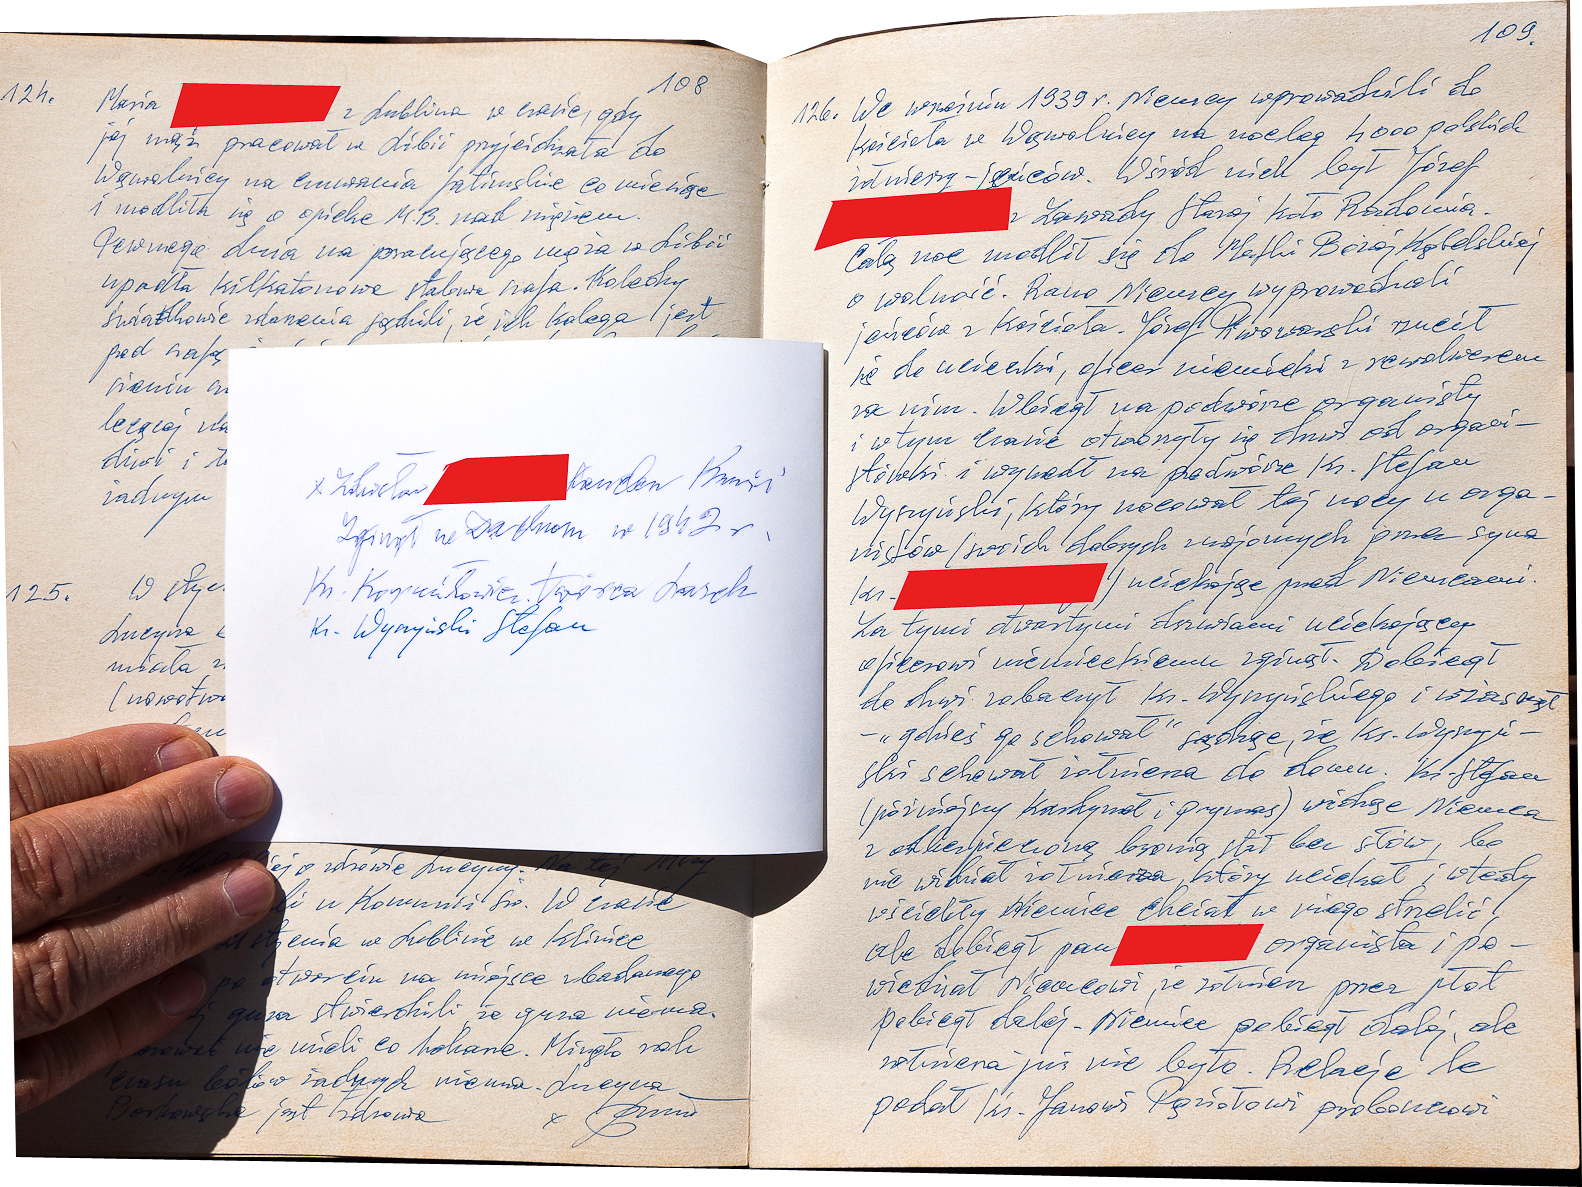 108
124. Maria z Lublina w czasie, gdy
jej mąż pracował w Libii przyjeżdżała do
Wąwolnicy na czuwania fatimskie co miesiąc
i modliła się o opiekę M.B. nad mężem.
Pewnego dnia na pracującego męża w Libii
upadła kilkatonowa stalowa szafa. Koledzy
świadkowie zdarzenia sądzili, że ich kolega jest
pod szafą
leżącej
drzwi i
żadnym
125. W stycz
Lucyna
miała
(nowotwo
o zdrowie Lucyny. Na tej Mszy
li u Komunii Św. W czasie
w Lublinie w Klinice
po otwarciu na miejsce zbadanego
guza stwierdzili, że guza niema.
nie mieli co dokonać. Minęło rok
czasu bólów żadnych niema. Lucyna
Borkowska jest zdrowa
x Zdzisław
Zginął we Wschodn w 1942 r.
Ks. Korniłowicz. Twórca Lasek
Ks. Wyszyński Stefan
109.
126. We wrześniu 1939 r. Niemcy wprowadzili do
Kościoła w Wąwolnicy na nocleg 4000 polskich
żołnierzy-jeńców. Wśród nich był Józef
z Zawady Starej koło Radomia.
Całą noc modlił się do Matki Bożej Kębelskiej
o wolność. Rano Niemcy wyprowadzali
jeńców z Kościoła. Józef rzucił
się do ucieczki, oficer niemiecki z rewolwerem
za nim. Wbiegł na podwórze organisty
i w tym czasie otworzyły się drzwi od organi-
stówki i wyszedł na podwórze Ks. Stefan
Wyszyński, który nocował tej nocy u orga-
nistów (swoich dobrych znajomych przez syna
Ks. ) uciekając przed Niemcami.
Za tymi otwartymi drzwiami uciekający
oficerowi niemieckiemu zginął. Dobiegł
do drzwi zobaczył Ks. Wyszyńskiego i wrzasnął
-"gdzieś go schował" sądząc, że Ks. Wyszyń-
ski schował żołnierza do domu. Ks. Stefan
(późniejszy Kardynał i Prymas) widząc Niemca
z odbezpieczoną bronią stał bez słów, bo
nie widział żołnierza, który uciekał i wtedy
wściekły Niemiec chciał w niego strzelić,
ale dobiegł pan organista i po-
wiedział Niemcowi, że żołnierz przez płot
pobiegł dalej. Niemiec pobiegł dalej, ale
żołnierza już nie było. Relację tę
podał Ks. Janowi Pęziołowi proboszczowi